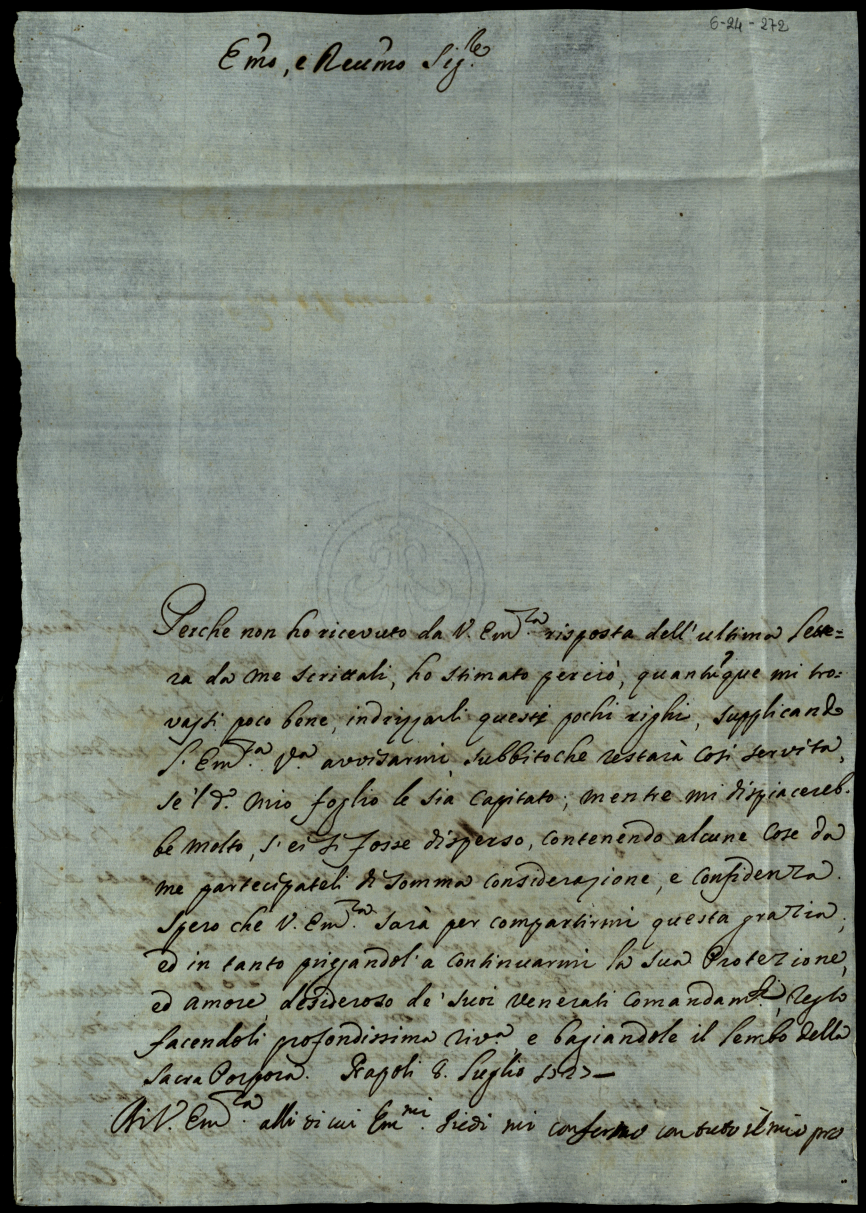 6-24-272
Emo, e Reumo Sig.re
Perche non ho ricevuto da V. Em.za risposta dell'ultima lette=
ra da me scrittali, ho stimato perciò, quantuque mi tro=
vassi poco bene, indrizzarli questi pochi righi, supplicando
l'Em.za V.a avvisarmi, subbitoche restarà così servita,
se'l d.o mio foglio le sia capitato; mentre mi dispiacereb=
be molto, s'ei si fosse disperso, contenendo alcune cose da
me partecipateli di somma considerazione, e confidenza.
Spero che V. Em.za sarà per compartirmi questa grazia;
ed in tanto priegandol'a continuarmi la sua Protezione,
ed amore, desideroso de' suoi venerati comandam.ti, resto
facendoli profondissima riv.a e bagiandole il lembo della
Sacra Porpora. Napoli 8. Luglio
Di V. Em.za alli di cui Em.mi Piedi mi confermo con tutto il mio pro